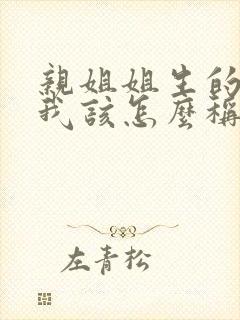 親姐姐生的
我該怎麼稱
左青松